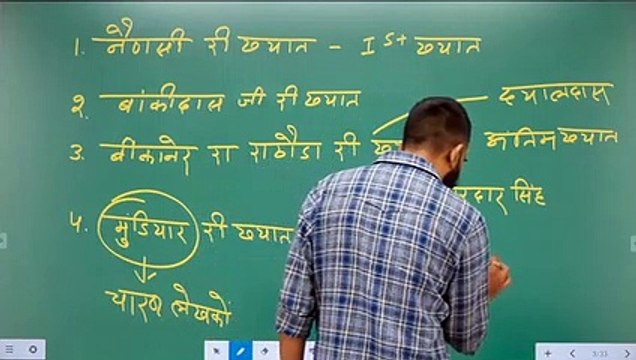 1. नैणसी री ख्यात - Ist ख्यात
2. बांकीदास जी री ख्यात
दयालदास
3. बीकानेर रा राठौडा री अंतिम ख्यात
सिंह
4. मुंडियार री ख्यात
चारण लेखको
3/33